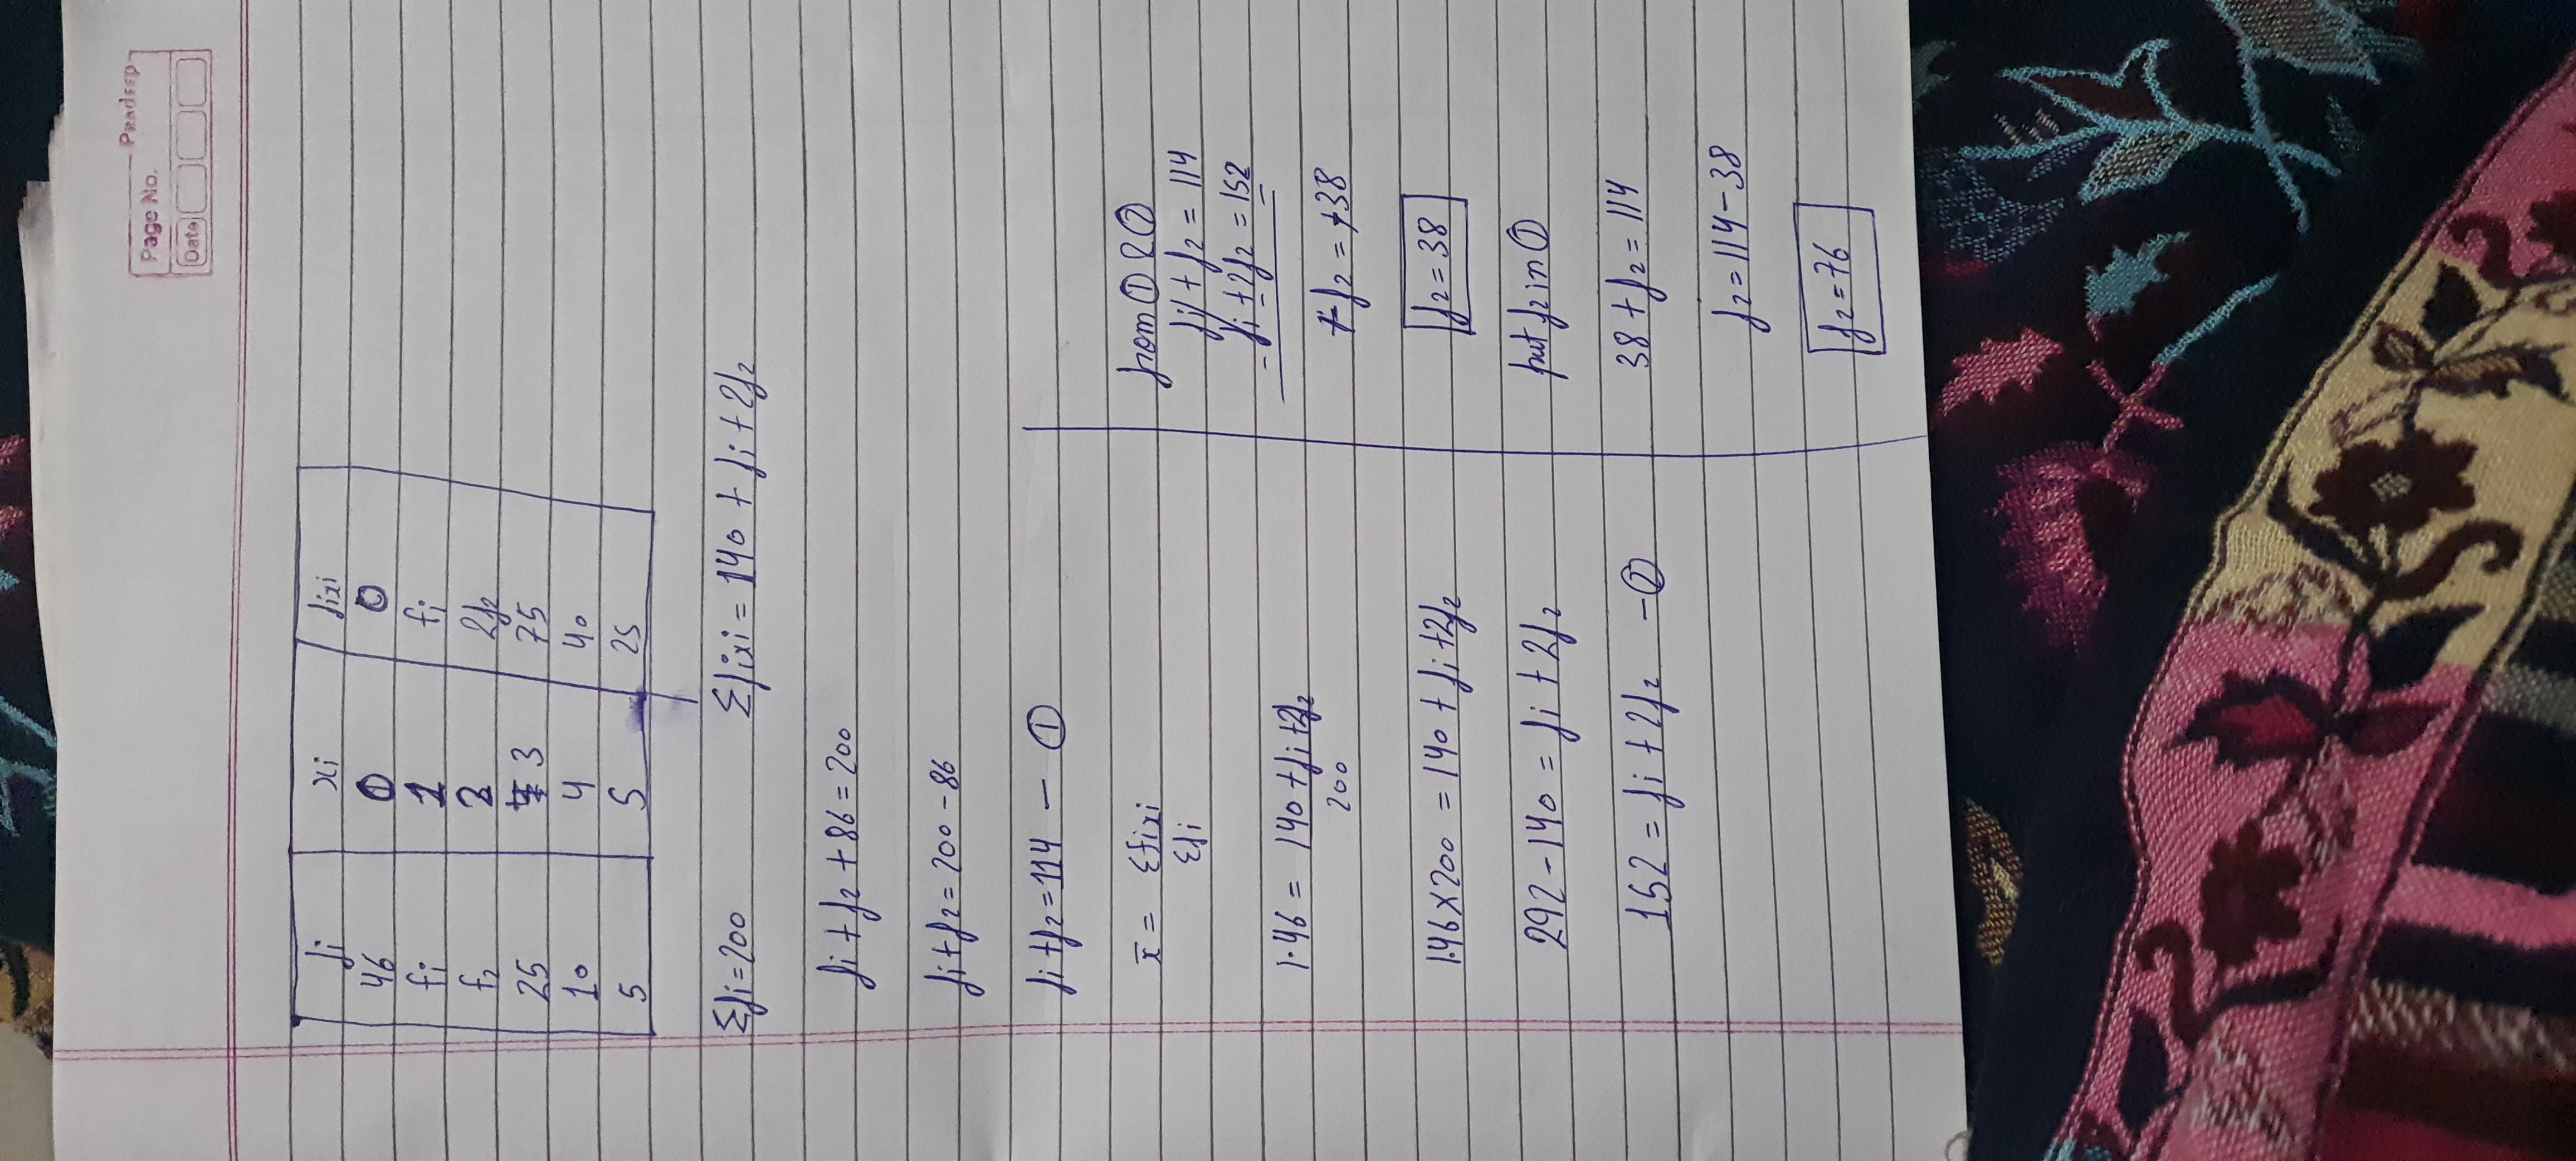 Page No.
Date
PRADEEP
fi xi fixi
46 0 0
f1 1 f1
f2 2 2f2
25 3 75
10 4 40
5 5 25
Σfi=200 Σfixi = 140 + f1 + 2f2
f1 + f2 + 86 = 200
f1+f2 = 200 - 86
f1+f2 = 114 - ①
x̄ = Σfixi
Σfi
1.46 = 140+f1+2f2
200
1.46×200 = 140 + f1+2f2
292 - 140 = f1 + 2f2
152 = f1 + 2f2 - ②
from ① & ②
f1 + f2 = 114
f1 + 2f2 = 152
- - =
+ f2 = +38
f2 = 38
put f2 in ①
38 + f2 = 114
f2 = 114 - 38
f2 = 76